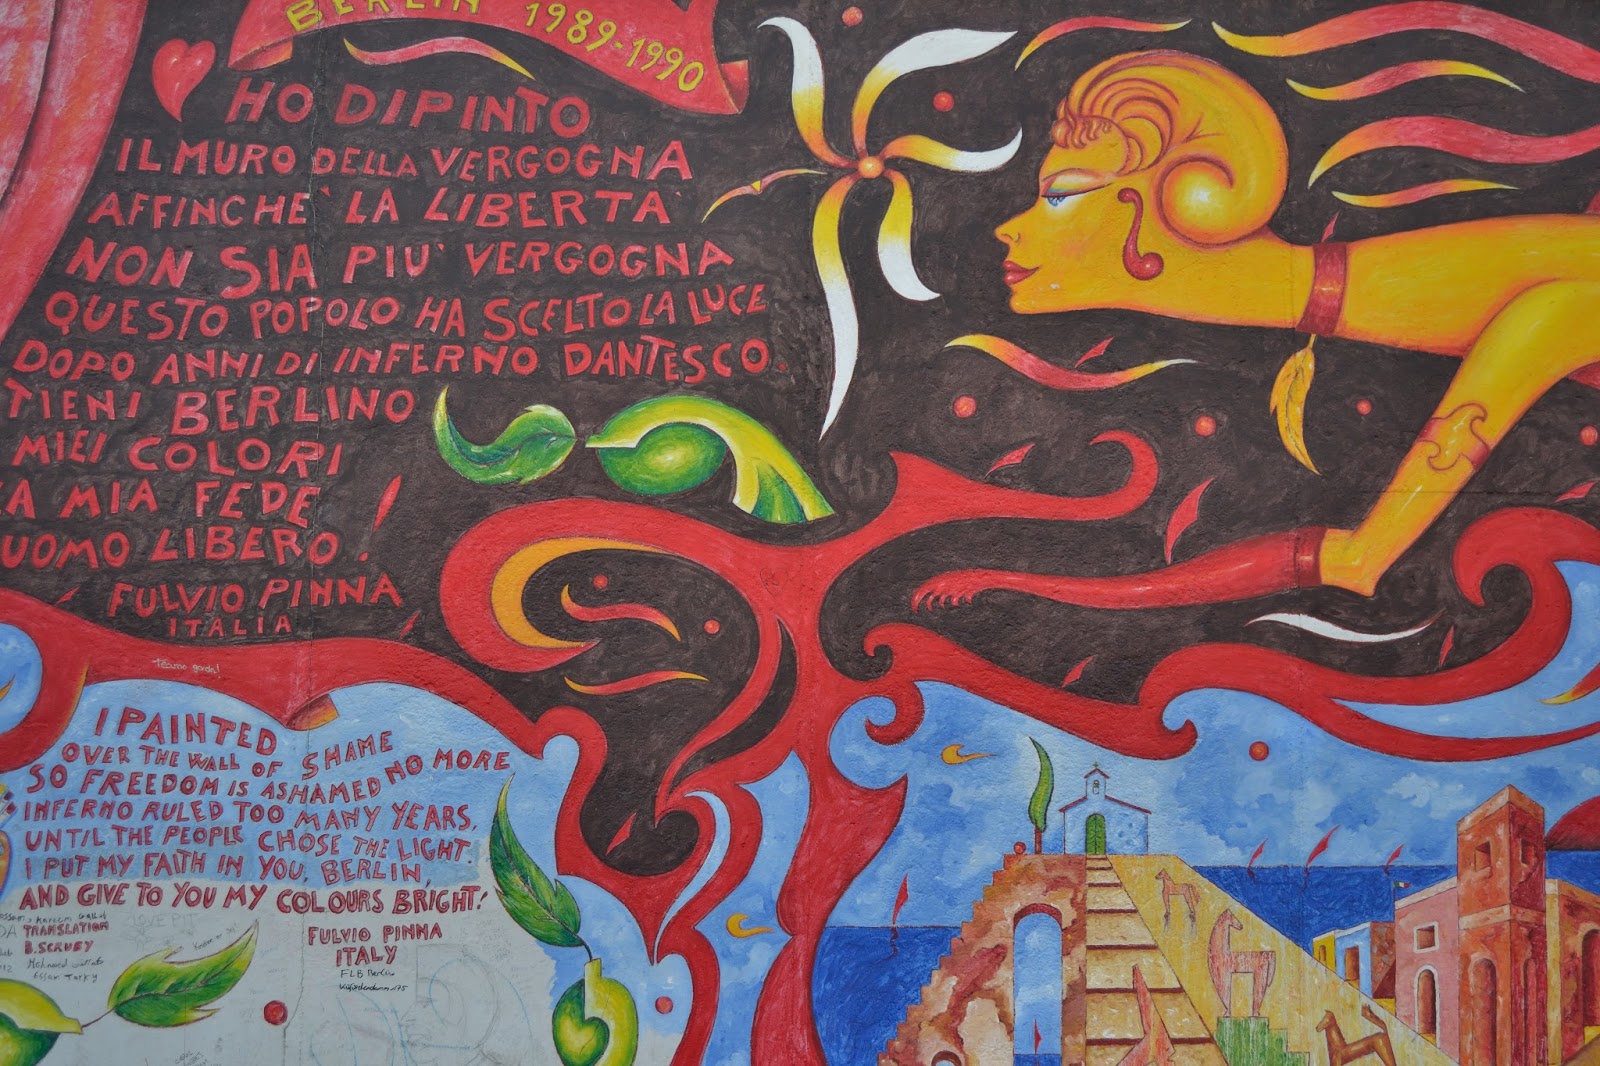 BERLIN 1989-1990
HO DIPINTO
IL MURO DELLA VERGOGNA
AFFINCHE` LA LIBERTA`
NON SIA PIU` VERGOGNA
QUESTO POPOLO HA SCELTO LA LUCE
DOPO ANNI DI INFERNO DANTESCO.
TIENI BERLINO
MIEI COLORI
LA MIA FEDE
UOMO LIBERO!
FULVIO PINNA
ITALIA
I PAINTED
OVER THE WALL OF SHAME
SO FREEDOM IS ASHAMED NO MORE
INFERNO RULED TOO MANY YEARS,
UNTIL THE PEOPLE CHOSE THE LIGHT.
I PUT MY FAITH IN YOU, BERLIN,
AND GIVE TO YOU MY COLOURS BRIGHT!
TRANSLATION
B. SCRUBY
FULVIO PINNA
ITALY
FLB Berlin